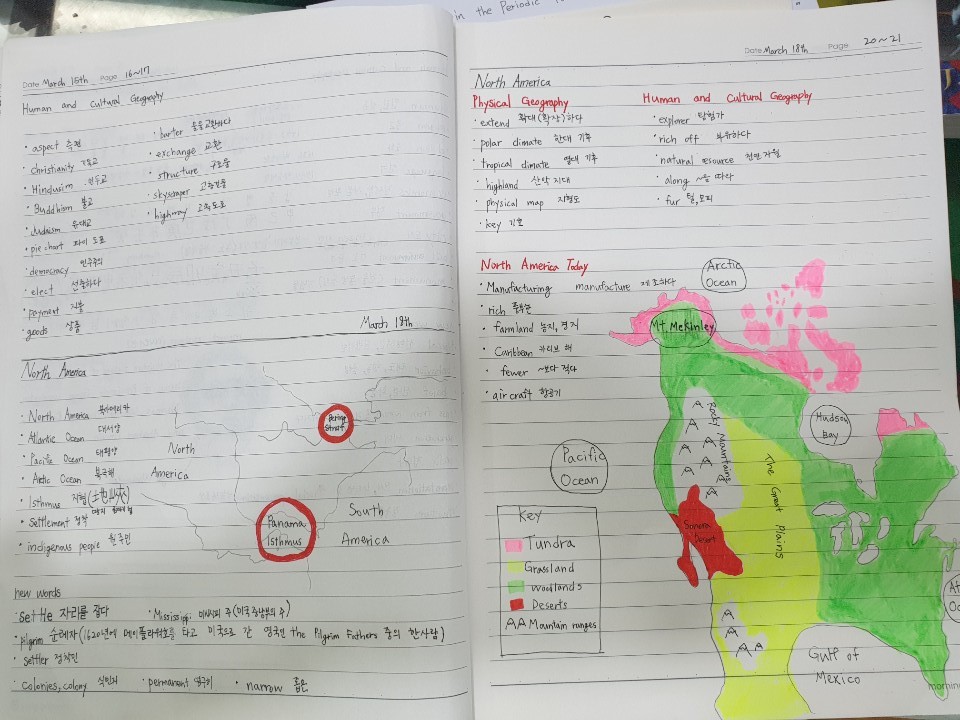 in the Periodic
Date March 15th Page 16~17
Human and Cultural Geography
· aspect 측면
· christianity 기독교
· Hinduism 힌두교
· Buddhism 불교
· Judaism 유대교
· pie chart 파이 도표
· democracy 민주주의
· elect 선출하다
· payment 지불
· goods 상품
· barter 물물교환하다
· exchange 교환
· structure 구조물
· skyscraper 고층건물
· highway 고속도로
March 18th
North America
· North America 북아메리카
· Atlantic Ocean 대서양
· Pacific Ocean 태평양
· Arctic Ocean 북극해
· Isthmus 지협
· Settlement 정착
· indigenous people 원주민
North
America
Bering
Strait
Panama
Isthmus
South
America
new words
· settle 자리를 잡다 · Mississippi 미시시피 주(미국 중남부의 주)
· pilgrim 순례자(1620년에 메이플라워호를 타고 미국으로 간 영국인 the Pilgrim Fathers 중의 한사람)
· settler 정착민
· colonies, colony 식민지 · permanent 영구히 · narrow 좁은
Date March 18th Page 20~21
North America
Physical Geography
· extend 확대(확장)하다
· polar climate 한대 기후
· tropical climate 열대 기후
· highland 산악 지대
· physical map 지형도
· key 기호
Human and Cultural Geography
· explorer 탐험가
· rich off 부유하다
· natural resource 천연 자원
· along ~을 따라
· fur 털, 모피
North America Today
· Manufacturing manufacture 제조하다
· rich 풍부한
· farmland 농지, 경지
· Caribbean 카리브 해
· fewer ~보다 적다
· aircraft 항공기
Arctic
Ocean
Mt. McKinley
Hudson
Bay
Pacific
Ocean
Rocky Mountains
The Great Plains
Sonora
Desert
Key
Tundra
Grassland
woodlands
Deserts
Mountain ranges
Gulf of
Mexico
At
Oc
morning